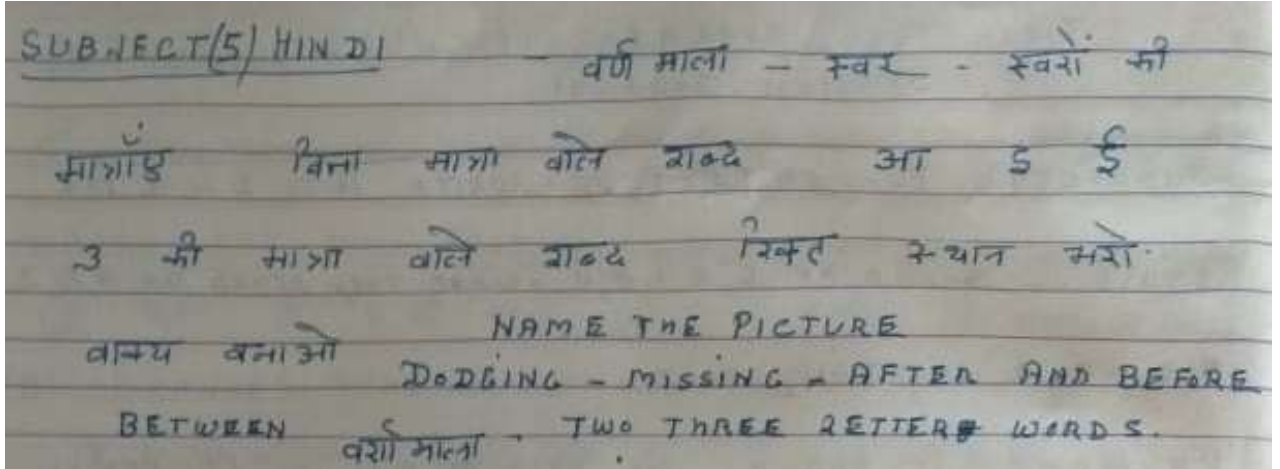 SUBJECT(5) HINDI - वर्ण माला - स्वर - स्वरों की
मात्राएँ बिना मात्रा वाले शब्द आ इ ई
उ की मात्रा वाले शब्द रिक्त स्थान भरो.
वाक्य बनाओ NAME THE PICTURE
DODGING - MISSING - AFTER AND BEFORE
BETWEEN वर्णमाला - TWO THREE LETTER WORDS.